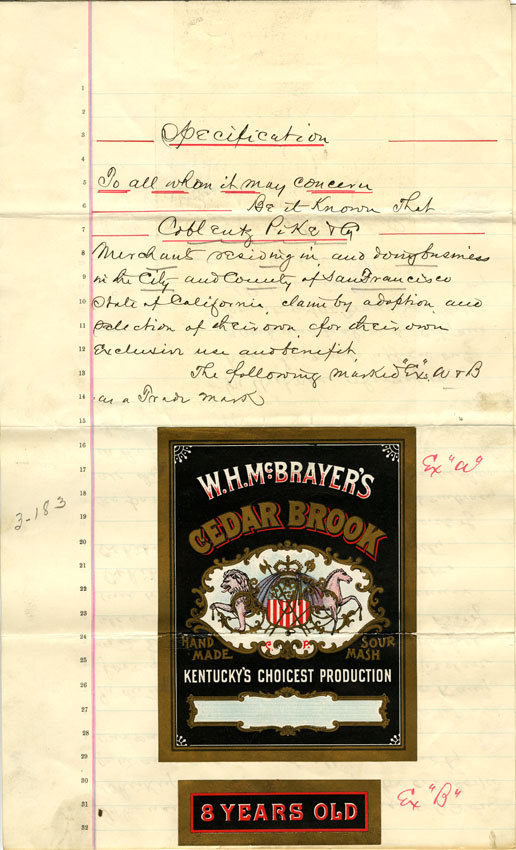 Specification
To all whom it may concern
Be it Known That
Coblentz Pike & Co
Merchants residing in and doing business
in the City and County of San Francisco
State of California, claim by adoption and
selection of their own, for their own
Exclusive use and benefit.
The following marked "Ex". A & B
as a Trade mark
Ex "A"
W.H. McBRAYER'S
CEDAR BROOK
HAND MADE
SOUR MASH
KENTUCKY'S CHOICEST PRODUCTION
3-183
8 YEARS OLD
Ex "B"
1
2
3
4
5
6
7
8
9
10
11
12
13
14
15
16
17
18
19
20
21
22
23
24
25
26
27
28
29
30
31
32